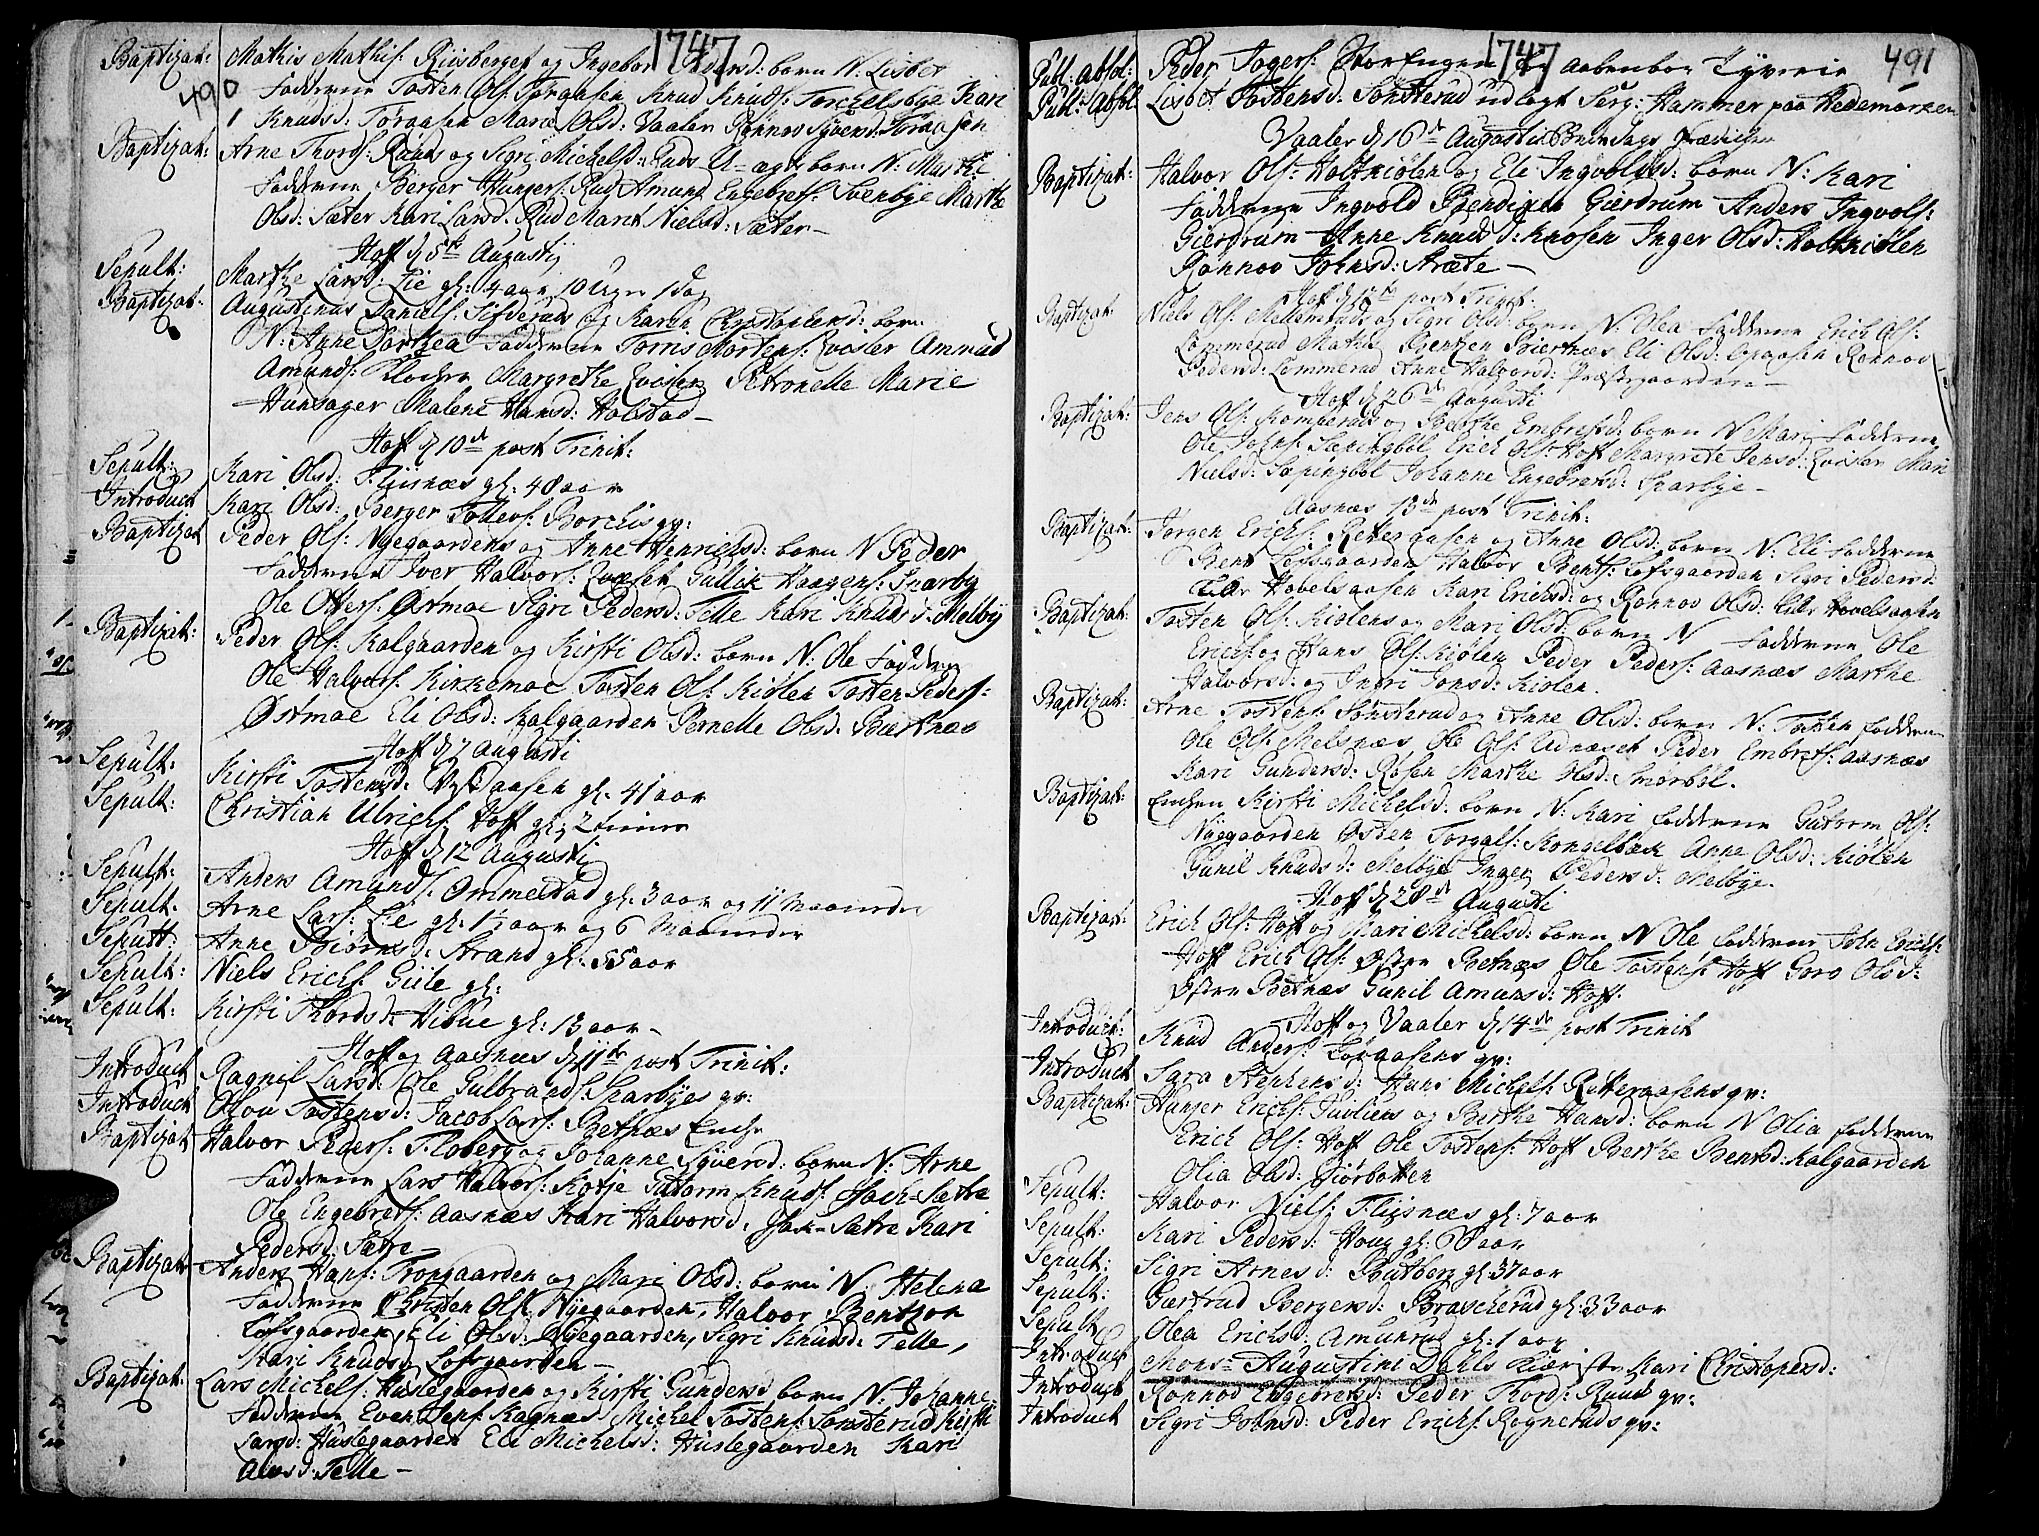 1747
490
Baptizat: Mathis Mathis: Riisberget og Ingebor Olsd: born N: Lisbet
Fadderne Tosten Ols: Toraasen Knud Knuds: Torkelsbye Kari
Knudsd: Toraasen Mari Olsd: Vaaler Rønnov Syversd: Toraasen
Baptizat: Arne Thords: Ruuds og Sigri Michelsd: Ruds U-ægte born N: Marthe
Fadderne Berger Hungers: Rud Amund Engebrets: Svenbye Marthe
Olsd: Sæter Kari Larsd: Rud Marit Nielsd: Sæter
Hoff d 5te Augusti
Sepult: Marthe Larsd: Lie gl: 4 aar 10 Uger 1 dag
Baptizat: Augustinus Daniels: Sifderuds og Karen Christophersd: born
N: Anne Dorthea Fadderne Torris Mortens: Qvisler Ammund
Amunds: Klocher Margrethe Qvisler Petronelle Marie
Hunsager Malene Hansd: Holstad
Hoff d 10de post Trinit:
Sepult: Kari Olsd: Fliisnæs gl: 48 aar
Introduct Kari Olsd: Berger Tollevs: gv:
Baptizat Peder Ols: Nyegaardens og Anne Henrichsd: born N Peder
Fadderne Iver Halvors: Gullik Haagens: Snarby
Ole Otters: Østmoe Sigri Pedersd: Telle Kari Knudsd: Melby
Baptizat: Peder Ols: Kalgaarden og Kirsti Olsd: born N: Ole Fadderne
Ole Halvors: Kirkemoe Tosten Ols: Kiølen Tosten Peders:
Østmoe Eli Olsd: Kalgaarden Pernelle Olsd: Biertnæs
Hoff d 7 Augusti
Sepult: Kirsti Tostensd: gl: 41 aar
Sepult: Christian Ulrichs: Hoff gl: 2 timer
Hoff d 12 Augusti
Sepult: Anders Amunds: Ommelstad gl: 3 aar og 11 Maaneder
Sepult: Arne Lars: Lie gl: 1 aar og 6 Maaneder
Sepult: Anne Biørnsd: Strand gl: 55 aar
Sepult: Niels Erichs: Giile gl:
Sepult: Kirsti Thordsd: Hibue gl: 13 aar
Hoff og Aasnæs d 11te post Trinit:
Introduct Ragnil Larsd: Ole Gulbrands: Skarbyes gv:
Introduct Olou Tostensd: Jacob Lars: Betnæs Enche
Baptizat Halvor Peders: Floberg og Johanne Syversd: born N: Arne
Fadderne Lars Halvors: Kotje Gutorm Knuds: Sætre
Ole Engebrets: Aasnæs Kari Halvorsd: Sætre Kari
Pedersd: Sætre
Baptizat Anders Hans: Trongaarden og Mari Olsd: born N: Helena
Fadderne Christen Ols: Nyegaarden, Halvor Bentzon
Lofsgaarden, Eli Olsd: Nyegaarden, Sigri Knudsd: Telle,
Kari Knudsd: Lofsgaarden
Baptizat: Lars Michels: Huslegaarden og Kirsti Gundersd born N: Johanne
Fadderne Even Olsen Kagnæs Michel Tostens: Sønsterud Kirsti
Larsd: Huslegaarden Eli Michelsd: Huslegaarden Kari
Olsd: Telle
1747
491
Publ: absol: Peder Jogers: Storengen for Aabenbar Tyverie
Publ: Absol Lisbet Tostensd: Sønsterud udlagt Serg: Hammer paa Hedemarken
Vaaler d 16de Augusti Bededags Prædiken
Baptizat: Halvor Ols: Holtkiølen og Eli Ingvoldsd: born N: Kari
Fadderne Ingvold Bendixen Gierdrum Anders Ingvols:
Gierdrum Anne Knudsd: Knosen Inger Olsd: Holtkiølen
Rønnov Johnsd: Aræte
Hoff d 12te post Trinit:
Baptizat Niels Ols: og Sigri Olsd: born N: Olea Fadderne Erich Ols:
Lømmerud Mathis Bentzen Biertnæs Eli Olsd: Rønnov
Pedersd: Lømmerud Anne Halvorsd: Præstegaarden
Hoff d 26de Augusti
Baptizat: Jens Ols: Komperuds og Berthe Embretsd: born N Mari Fadderne
Ole Johns: Sæpingbøl Erich Ols: Hoff Margrete Jensd: Qvisler Mari
Nielsd: Sæpingbøl Johanne Engebretsd: Sparbye
Aasnæs 13de post Trinit:
Baptizat: Jørgen Erichs: Retteraasen og Anne Olsd: born N: Eli Fadderne
Bent Lofsgaarden Halvor Bents: Lofsgaarden Sigri Pedersd:
Lille Hovelsaasen Kari Erichsd: og Rønnov Olsd: Lille Hovelsaasen
Baptizat: Tosten Ols: Kiølens og Mari Olsd: born N Fadderne Ole
Erichs: og Hans Ols: Kiølen Peder Peders: Aasnæs Marthe
Halvorsd: og Ingri Jonsd: Kiølen.
Baptizat: Arne Tostens: Sønsterud og Anne Olsd: born N: Tosten Faddere
Ole Ols: Melsnæs Ole Ols: Udnæset Peder Embrets: Aasnæs
Kari Gundersd: Røsen Marthe Olsd: Smørbøl.
Baptizat: Enchen Kirsti Michelsd: born N: Kari Fadderne Gutorm Ols:
Nøggaarden Østen Torgals: Kongelbæk Anne Olsd: Kiølen
Gunil Knudsd: Melbye Inger Pedersd: Melbye.
Hoff d 28de Augusti
Baptizat: Erich Ols: Hoff og Mari Michelsd: born N Ole Fadderne John Erichs:
Hoff Erich Ols: Østre Betnæs Ole Tostens: Hoff Goro Olsd:
Østre Betnæs Gunil Amunsd: Hoff.
Hoff og Vaaler d 14de post Trinit
Introduct: Knud Anders: Loraasens gv:
Introduct Sara Stephensd: Hans Michels: Retteraasens gv:
Baptizat: Hunger Erichs: Juuliens og Berthe Hansd: born N Olia Fadderne
Erich Ols: Hoff Ole Tostens: Hoff Berthe Bentsd: Kalgaarden
Olia Olsd: Siørbotten
Sepult: Halvor Niels: Fliisnæs gl: 7 aar
Sepult: Kari Pedersd: Houg gl: 68 aar
Sepult: Sigri Arnesd: Butberg gl: 37 aar
Sepult: Giertrud Bergersd: Braskerud gl: 33 aar
Sepult Olea Erichsd: Amunrud gl: 1 aar
Introduct Mons: Augustini Dahls Kiæriste Kari Christopersd:
Introduct Rønnov Engebretsd: Peder Thords: Ruud gv:
Introduct Sigri Johnsd: Peder Erichs: Rogneruds gv: